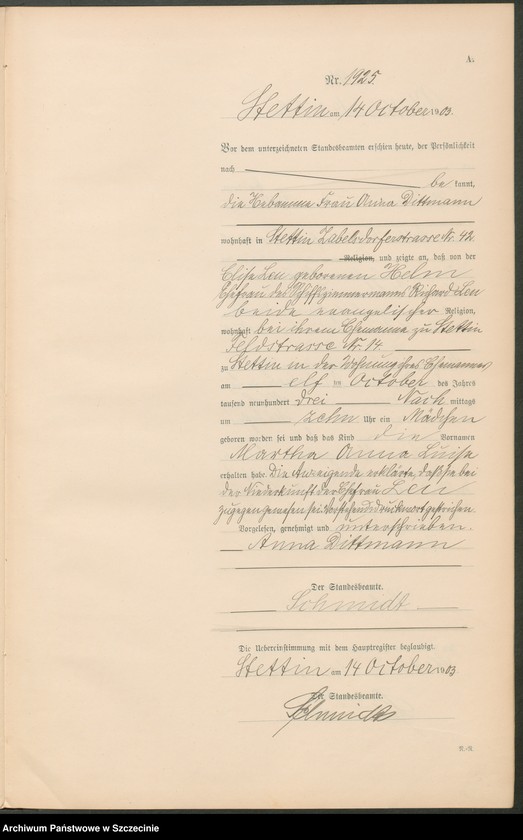 A.
Nr. 1925.
Stettin am 14 October 1903.
Vor dem unterzeichneten Standesbeamten erschien heute, der Persönlichkeit
nach
be kannt,
die Hebamme Frau Anna Dittmann
wohnhaft in Stettin Zabelsdorferstrasse Nr. 42
Religion, und zeigte an, daß von der
Elise Leu geborenen Helm
Ehefrau des Schiffszimmermanns Richard Leu
beide evangelischer Religion,
wohnhaft bei ihrem Ehemanne zu Stettin
Feldstrasse Nr. 14.
zu Stettin in der Wohnung ihres Ehemannes
am elf ten October des Jahres
tausend neunhundert drei Nach mittags
um zehn Uhr ein Mädchen
geboren worden sei und daß das Kind die Vornamen
Martha Anna Luise
erhalten habe. Die Anzeigende erklärte, daß sie bei
der Niederkunft der Ehefrau Leu
zugegen gewesen sei. Vorstehend 1 Druckwort gestrichen.
Vorgelesen, genehmigt und unterschrieben.
Anna Dittmann
Der Standesbeamte.
Schmidt
Die Uebereinstimmung mit dem Hauptregister beglaubigt.
Stettin am 14 October 1903
Der Standesbeamte.
Schmidt
Archiwum Państwowe w Szczecinie